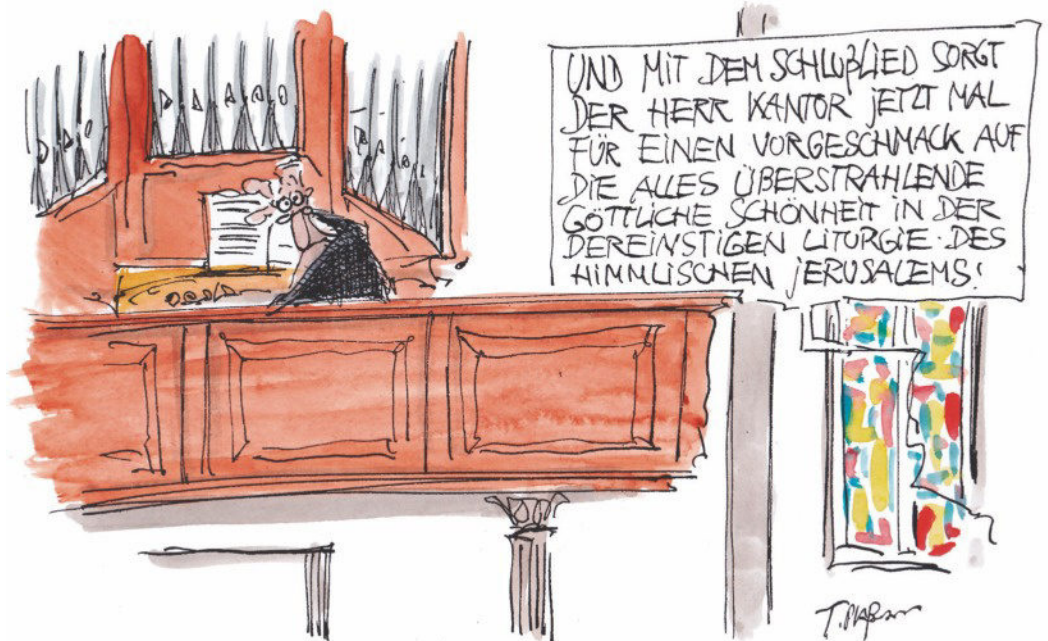 UND MIT DEM SCHLUßLIED SORGT
DER HERR KANTOR JETZT MAL
FÜR EINEN VORGESCHMACK AUF
DIE ALLES ÜBERSTRAHLENDE
GÖTTLICHE SCHÖNHEIT IN DER
DEREINSTIGEN LITURGIE DES
HIMMLISCHEN JERUSALEMS!
T. Plaßmann